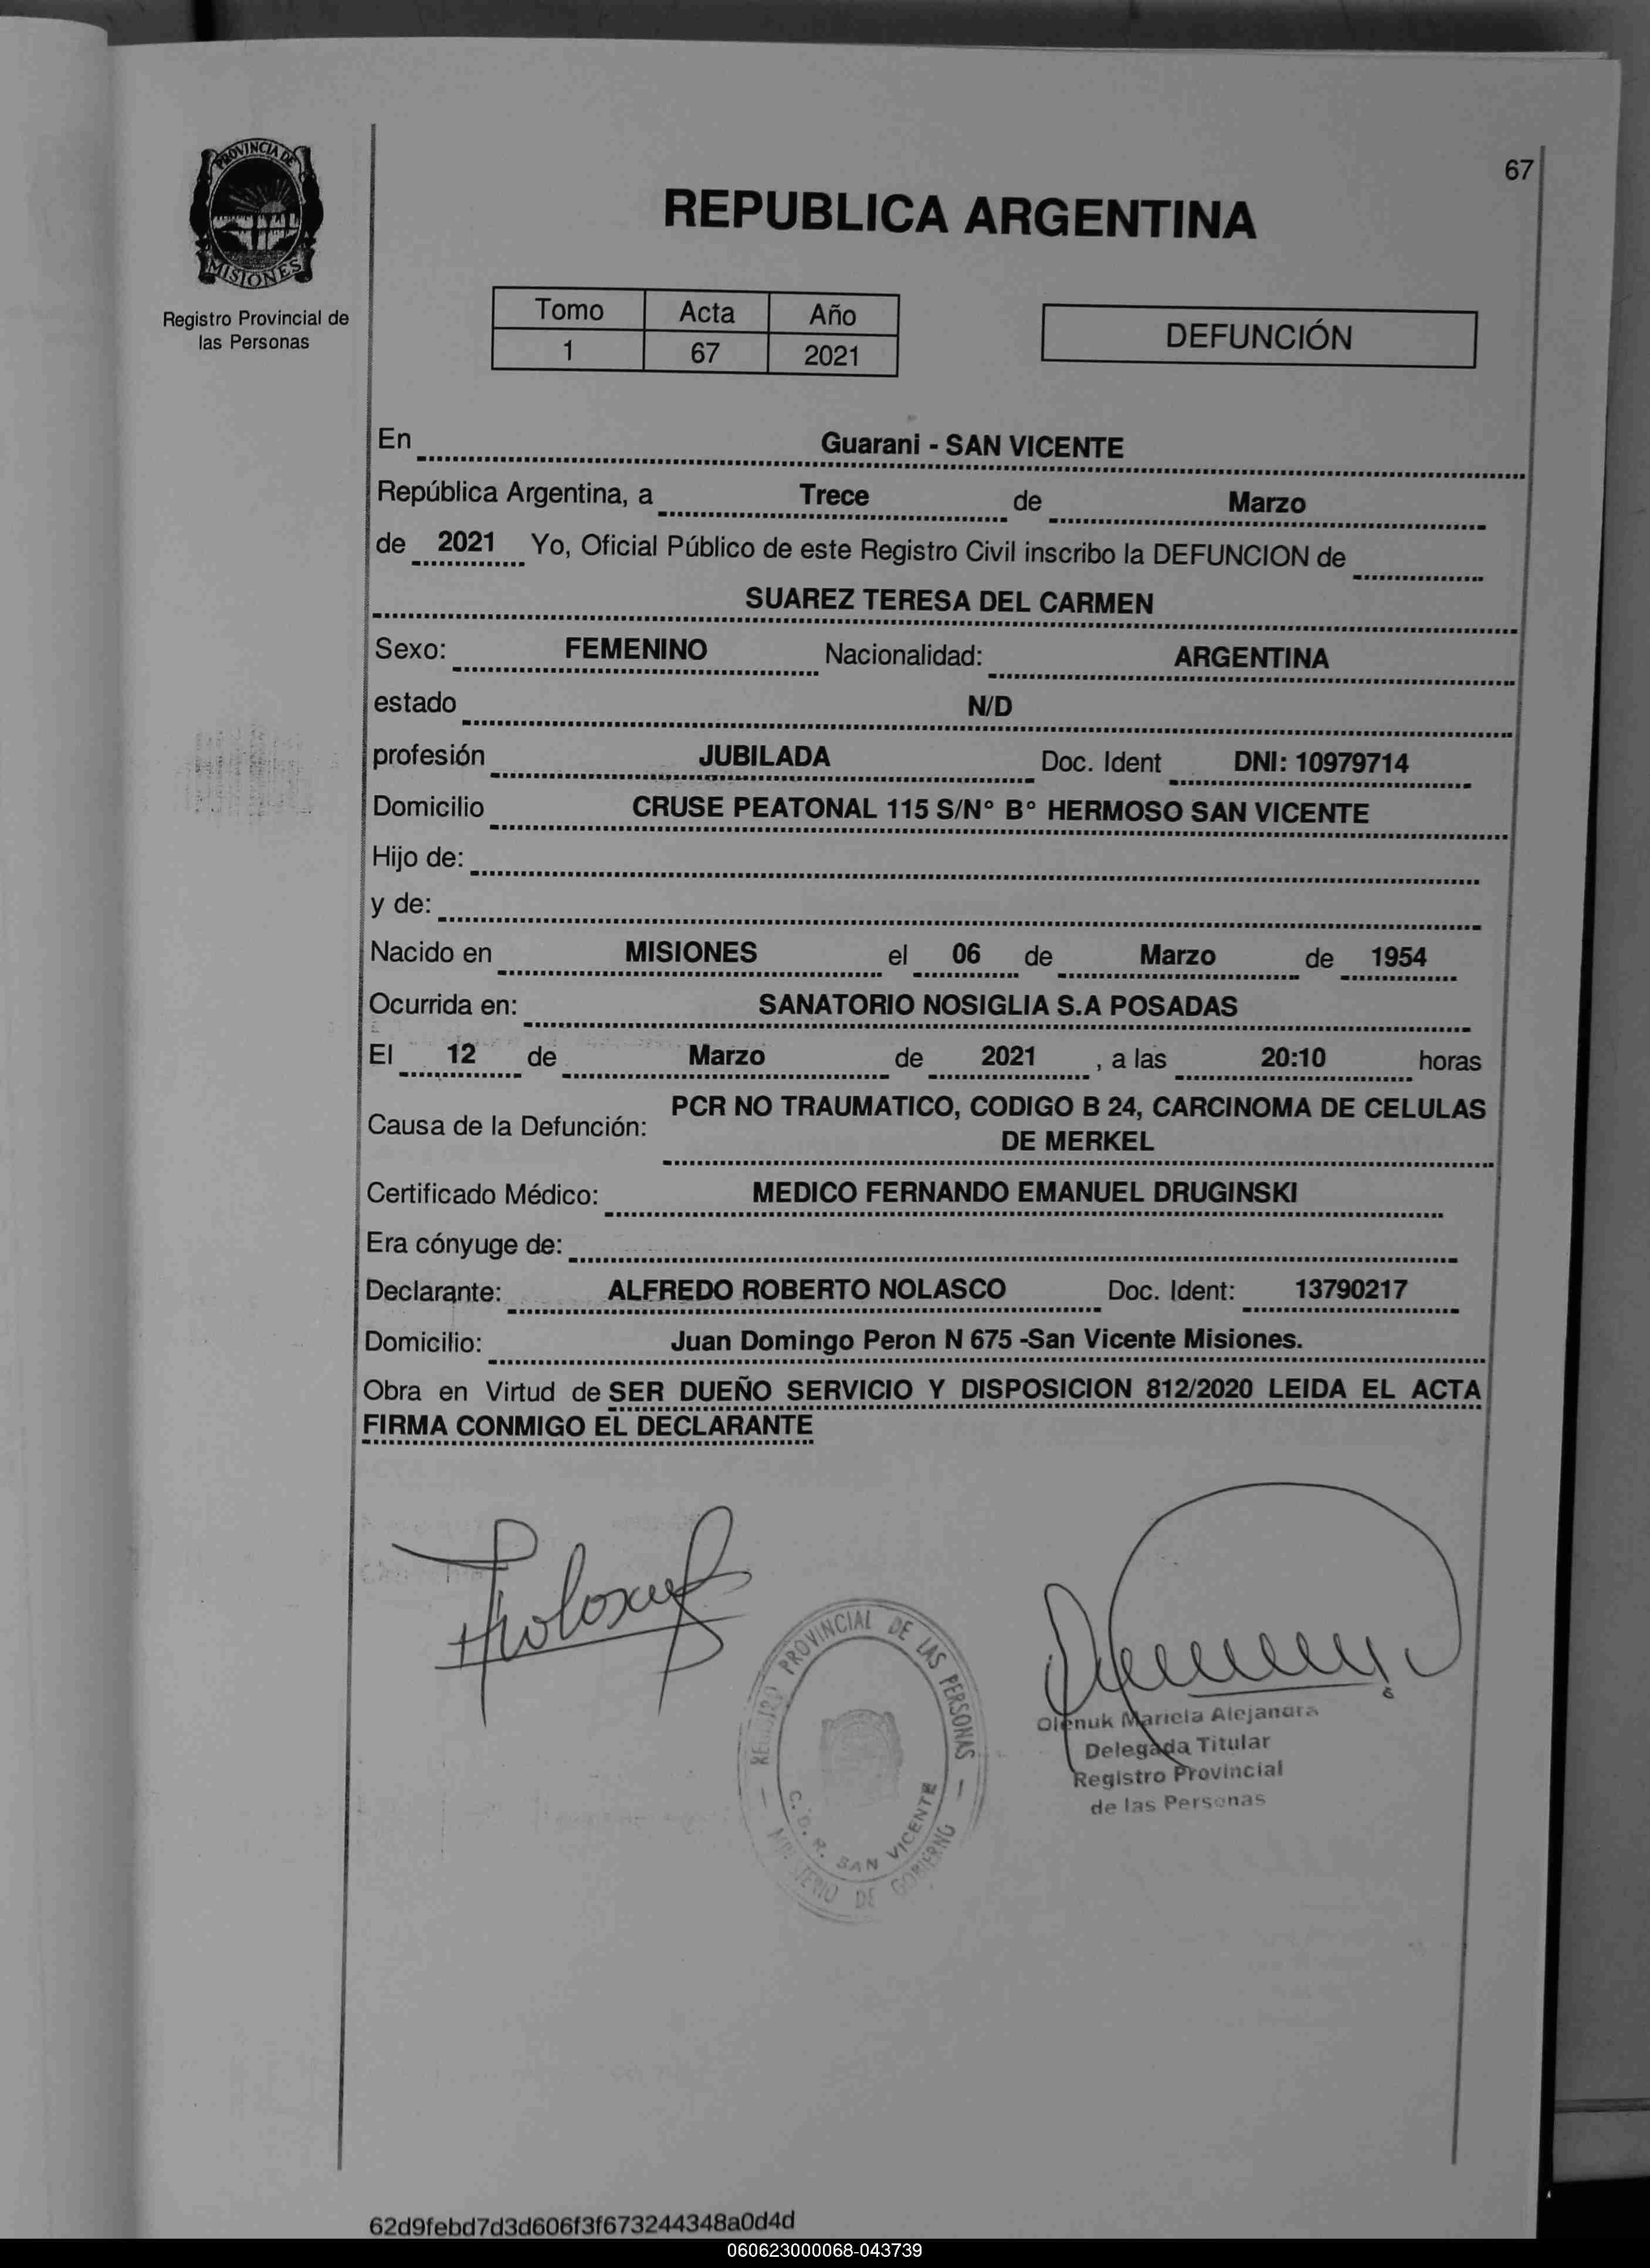 67
PROVINCIA DE
MISIONES
Registro Provincial de
las Personas
REPUBLICA ARGENTINA
Tomo Acta Año
1 67 2021
DEFUNCIÓN
En Guarani - SAN VICENTE
República Argentina, a Trece de Marzo
de 2021 Yo, Oficial Público de este Registro Civil inscribo la DEFUNCION de
SUAREZ TERESA DEL CARMEN
Sexo: FEMENINO Nacionalidad: ARGENTINA
estado N/D
profesión JUBILADA Doc. Ident DNI: 10979714
Domicilio CRUSE PEATONAL 115 S/N° B° HERMOSO SAN VICENTE
Hijo de:
y de:
Nacido en MISIONES el 06 de Marzo de 1954
Ocurrida en: SANATORIO NOSIGLIA S.A POSADAS
El 12 de Marzo de 2021 , a las 20:10 horas
Causa de la Defunción: PCR NO TRAUMATICO, CODIGO B 24, CARCINOMA DE CELULAS
DE MERKEL
Certificado Médico: MEDICO FERNANDO EMANUEL DRUGINSKI
Era cónyuge de:
Declarante: ALFREDO ROBERTO NOLASCO Doc. Ident: 13790217
Domicilio: Juan Domingo Peron N 675 -San Vicente Misiones.
Obra en Virtud de SER DUEÑO SERVICIO Y DISPOSICION 812/2020 LEIDA EL ACTA
FIRMA CONMIGO EL DECLARANTE
REGISTRO PROVINCIAL DE LAS PERSONAS
C. D. R. SAN VICENTE
MINISTERIO DE GOBIERNO
Olenuk Mariela Alejandra
Delegada Titular
Registro Provincial
de las Personas
62d9febd7d3d606f3f673244348a0d4d
060623000068-043739